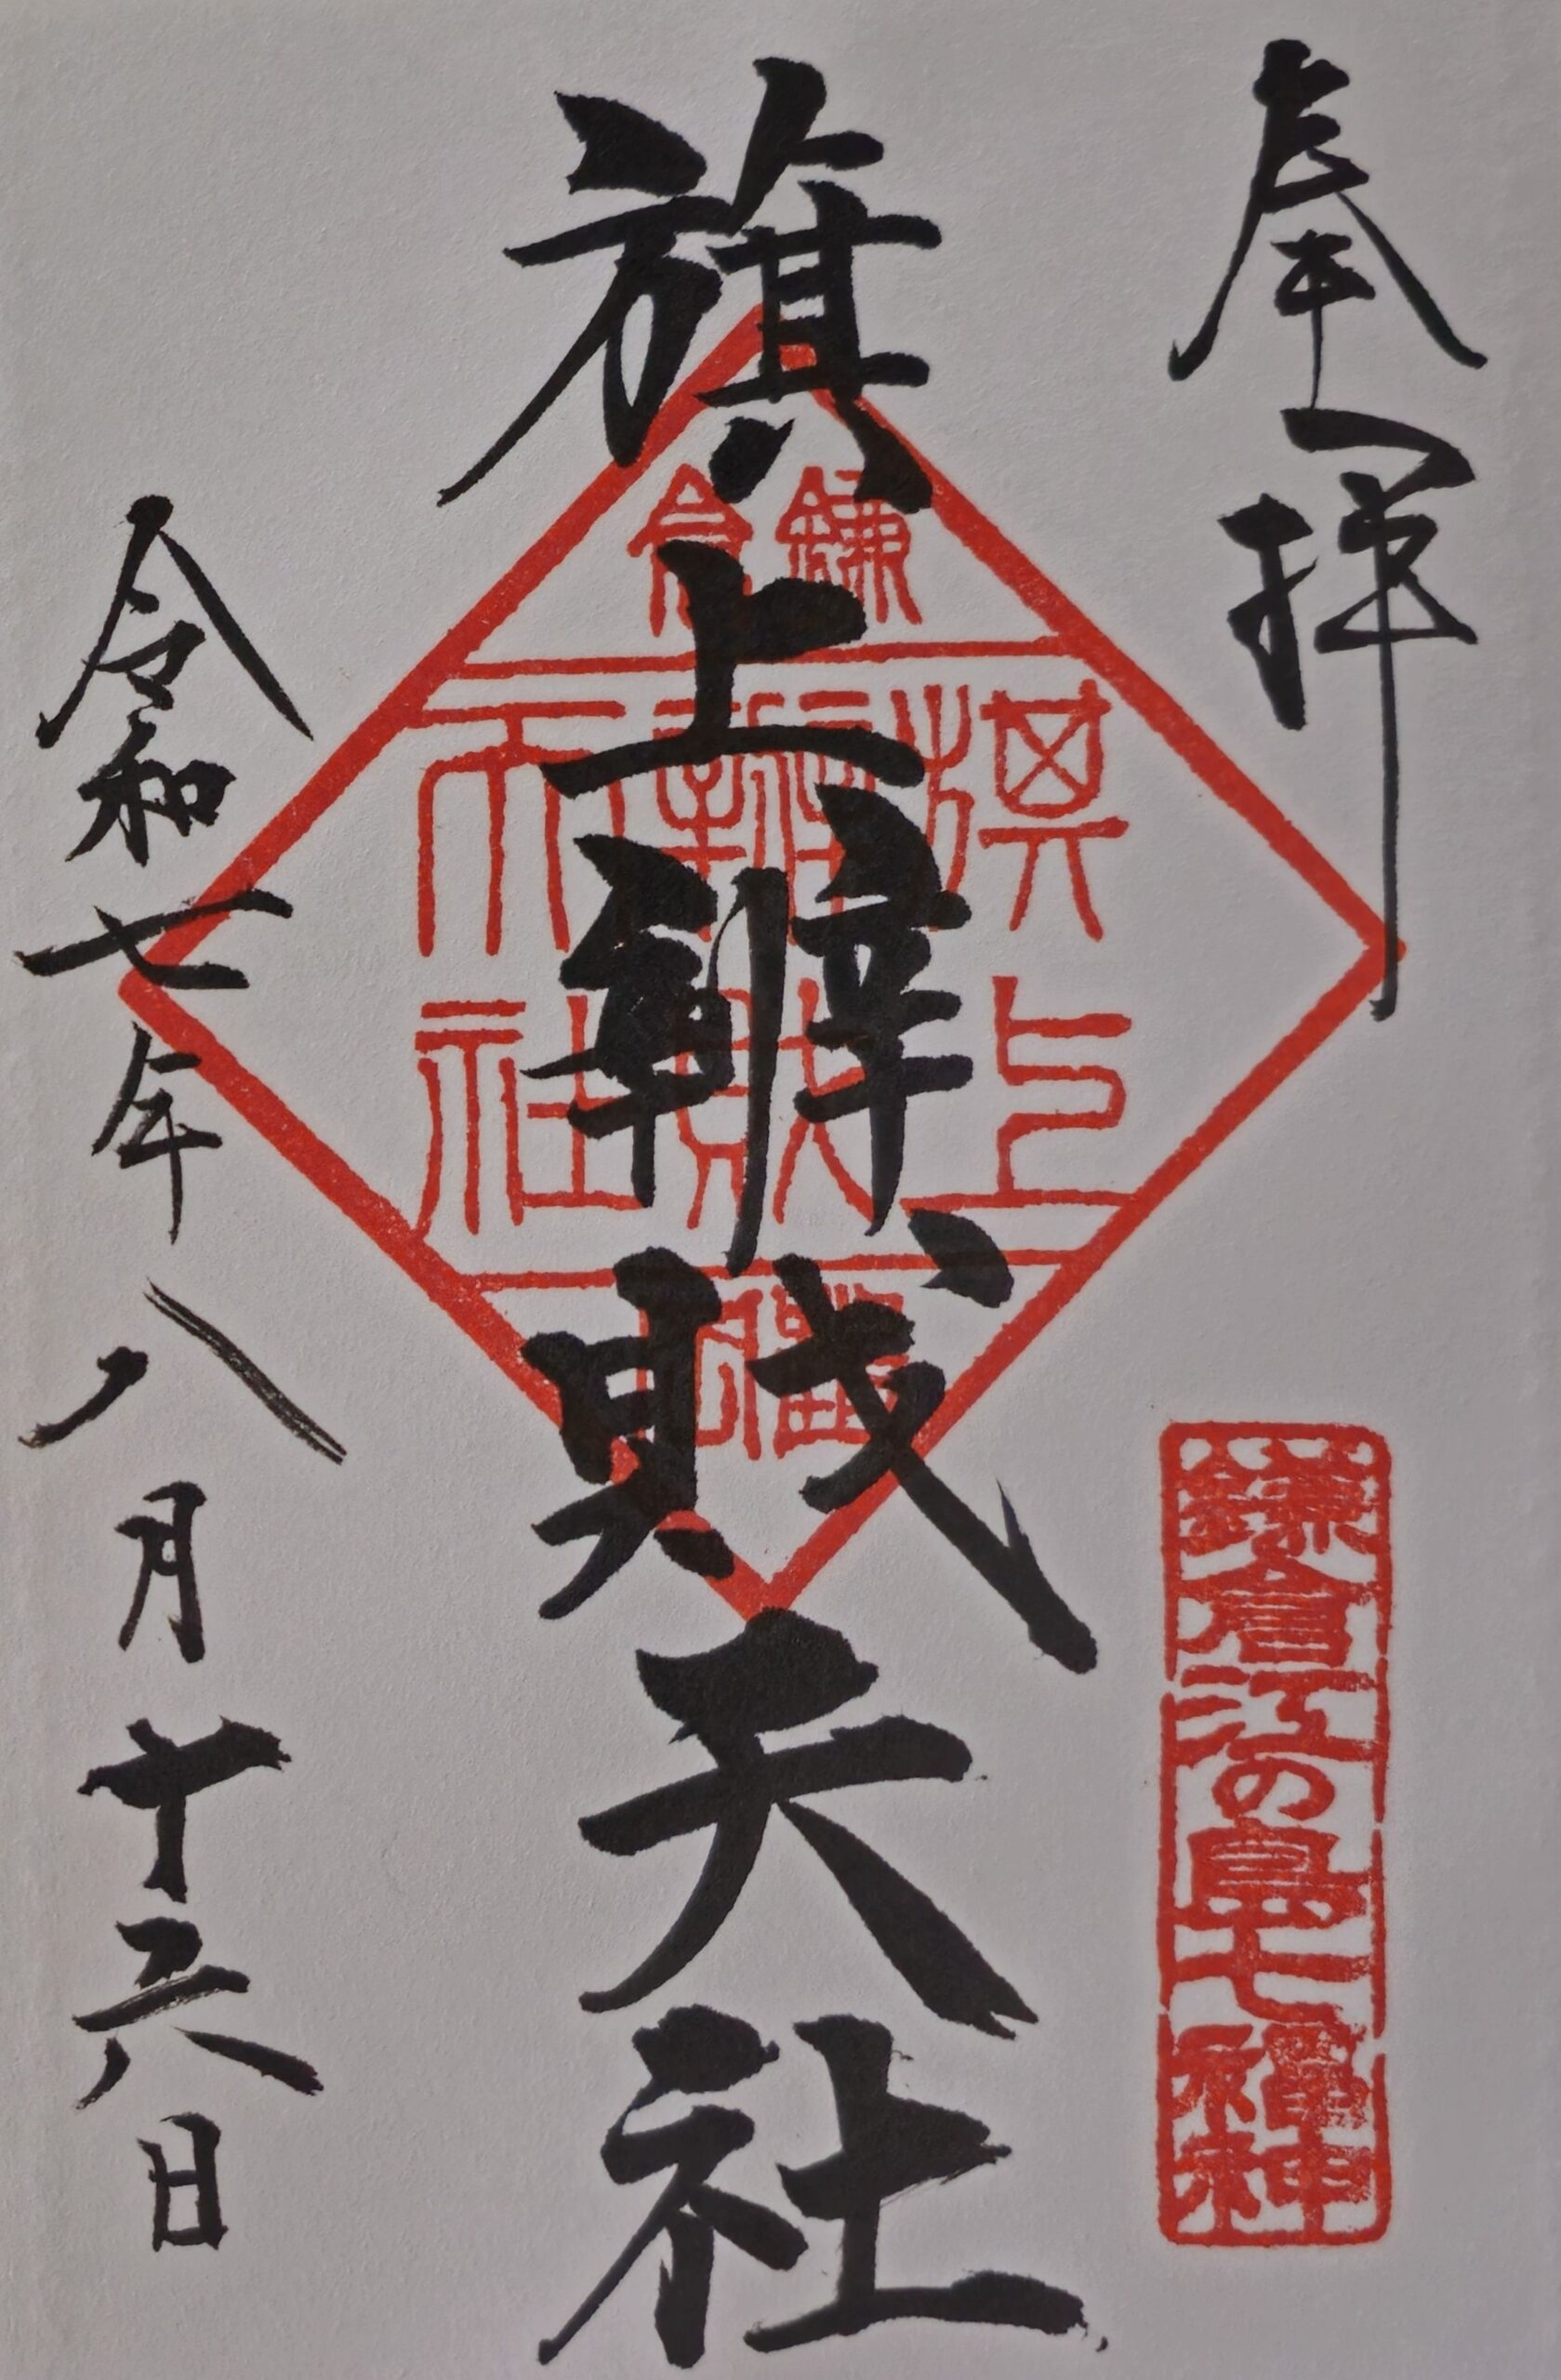 奉拝
鎌倉江の島七福神
旗上辨財天社
鎌倉
旗上
辨財
天社
令和七年八月十六日